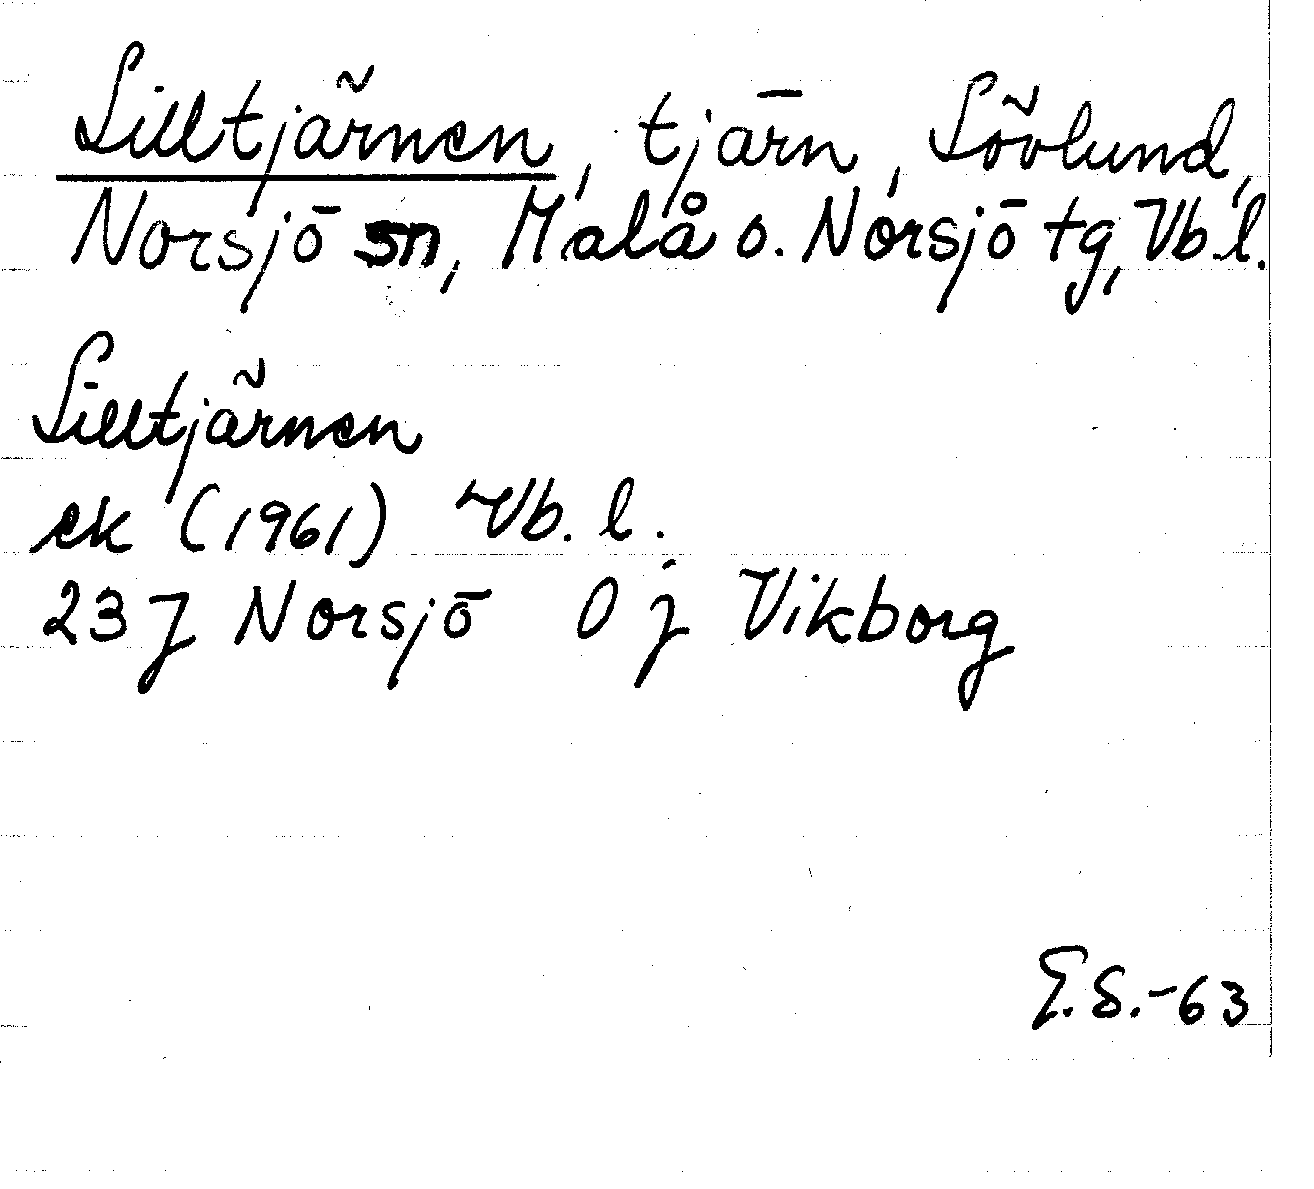 Lilltjärnen, tjärn, Lövlund,
Norsjö sn, Malå o. Norsjö tg, Vb.l.
Lilltjärnen
ek (1961) Vb. l.
23 J Norsjö 0 j Vikborg
G.S.-63